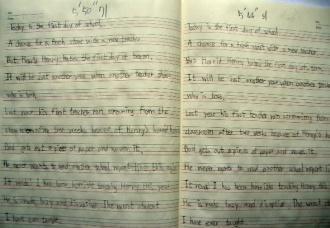 Today is the first day of school.
A chance for a fresh start with a new teacher.
But Horrid Henry hates the first day of term.
It will be just another year, when another teacher shows
who is boss.
Last year his first teacher ran screaming from the
classroom after two weeks because of Henry's
Dad gets out a piece of paper and waves it.
He never wants to read another school report like this
It reads I has been horrible teaching Henry this year
He is rude, lazy and disruptive. The worst student
I have ever taught.
Today is the first day of school.
A chance for a fresh start with a new teacher.
But Horrid Henry hates the first day of term.
It will be just another year, when another teacher
who is boss.
Last year his first teacher ran screaming from the
classroom after two weeks because of Henry's
Dad gets out a piece of paper and waves it.
He never wants to read another school report
It reads I has been horrible teaching Henry this
He is rude, lazy and disruptive. The worst
I have ever taught.